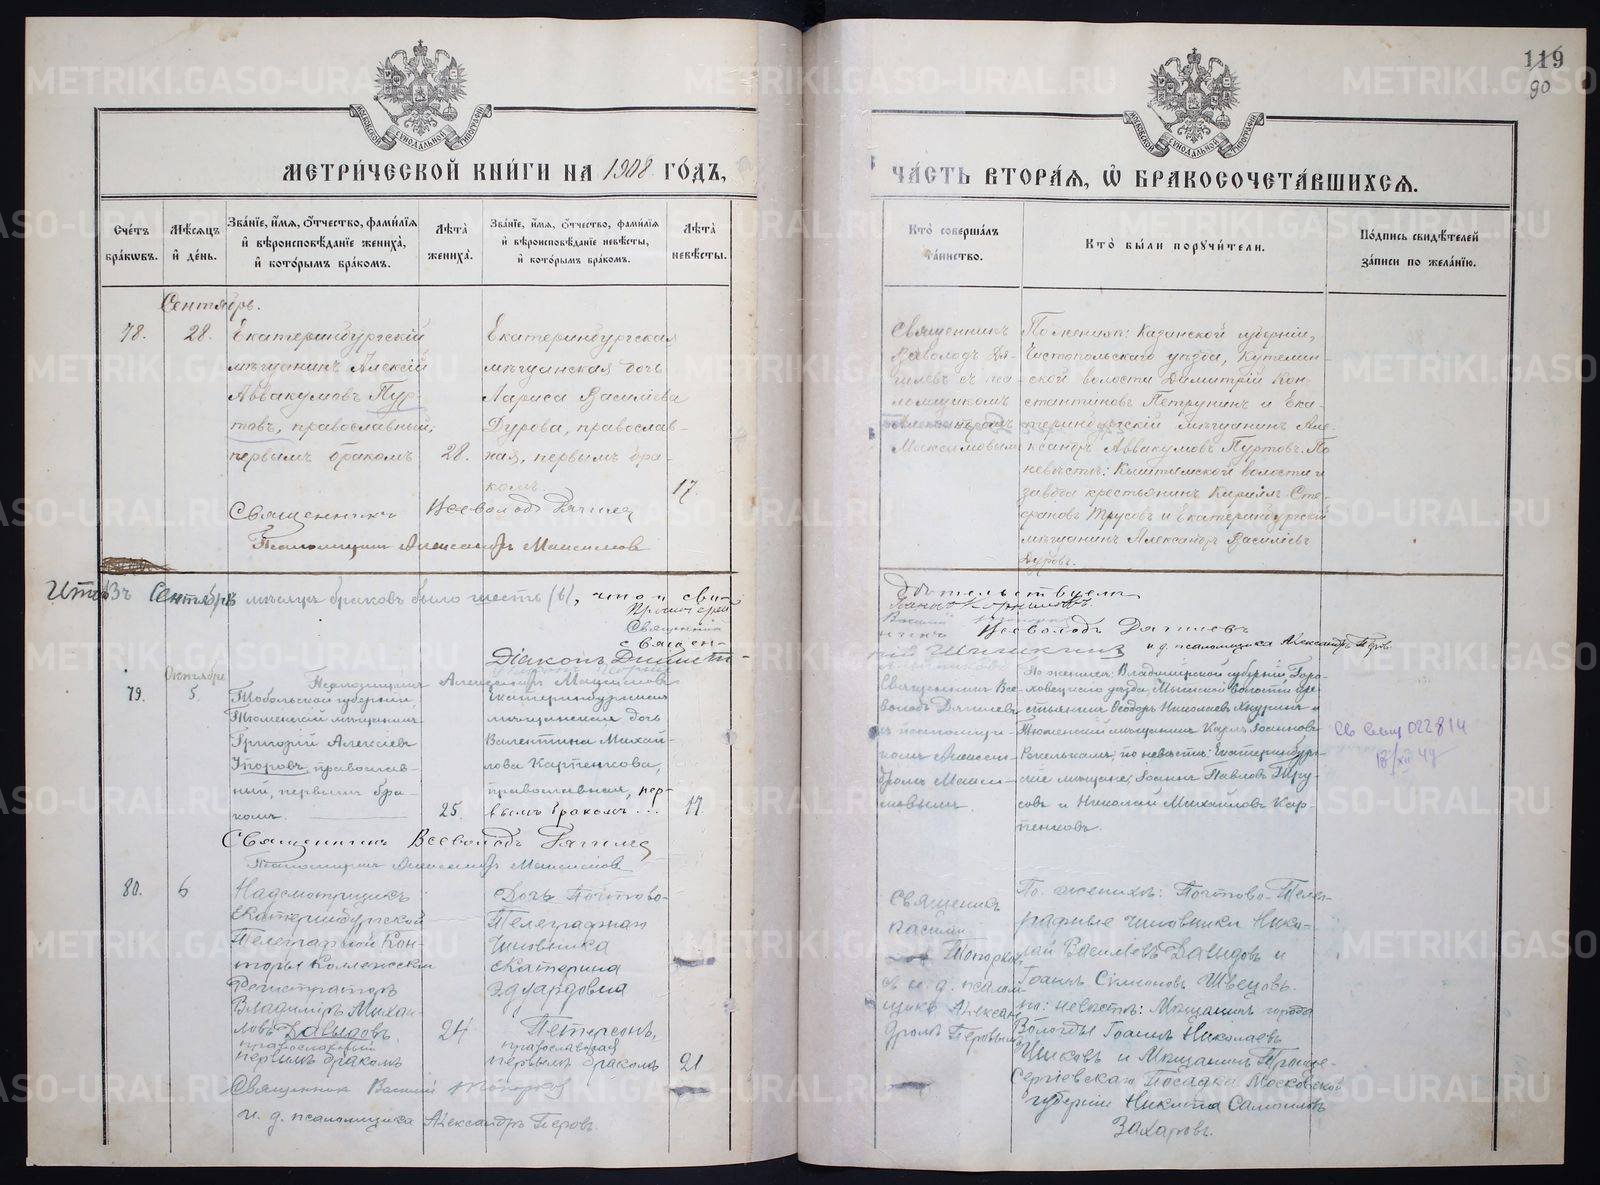 119
90
МЕТРИЧЕСКОЙ КНИГИ НА 1908 ГОДЪ,
ЧАСТЬ ВТОРАЯ, Ѡ БРАКОСОЧЕТАВШИХСЯ.
Счетъ браковъ.
Мѣсяцъ и день.
Званіе, имя, отчество, фамилія и вѣроисповѣданіе жениха, и которымъ бракомъ.
Лѣта жениха.
Званіе, имя, отчество, фамилія и вѣроисповѣданіе невѣсты, и которымъ бракомъ.
Лѣта невѣсты.
Кто совершалъ таинство.
Кто были поручители.
Подпись свидѣтелей записи по желанію.
Сентябрь.
78.
28.
Екатеринбургскій
мѣщанинъ Алексій
Аввакумовъ Пур-
товъ, православный,
первымъ бракомъ
28.
Екатеринбургская
мѣщанская дочь
Лариса Василіева
Дурова, православ-
ная, первымъ бра-
комъ.
17.
Священникъ
Всеволодъ Дя-
гилевъ съ пса-
ломщикомъ
Александромъ
Максимовымъ
По женихѣ: Казанской губерніи,
Чистопольскаго уѣзда, Кутемин-
ской волости Димитрій Кон-
стантиновъ Петрунинъ и Ека-
теринбургскій мѣщанинъ Але-
ксандръ Аввакумовъ Пуртовъ. По
невѣстѣ: Кыштымской волости и
завода крестьянинъ Кириллъ Сте-
фановъ Трусовъ и Екатеринбургскій
мѣщанинъ Александръ Василіевъ
Дуровъ.
Священникъ Всеволодъ Дягилев
Псаломщикъ Александръ Максимов
Итого Въ Сентябрѣ мѣсяцѣ браковъ было шесть (6), что и сви-
дѣтельствуемъ
Протоіерей
Священник
священ-
никъ Всеволодъ Дягилевъ
Діаконъ Димит-
рій Шишкинъ
и д. псаломщика Александръ Перов
Псаломщикъ Александръ Максимовъ
Октября
79.
5.
Тобольской губерніи,
Тюменскій мѣщанинъ
Григорій Алексіевъ
Егоровъ, православ-
ный, первымъ бра-
комъ.
25.
Екатеринбургская
мѣщанская дочь
Валентина Михай-
лова Карпенкова,
православная, пер-
вымъ бракомъ...
17.
Священникъ Все-
володъ Дягилевъ
съ псаломщи-
комъ Алексан-
дромъ Макси-
мовымъ.
По женихѣ: Владимірской губерніи, Горо-
ховецкаго уѣзда, Мытской волости кре-
стьянинъ Ѳеодоръ Николаевъ
Тюменскій мѣщанинъ Карлъ Іоанновъ
по невѣстѣ: Екатеринбург-
скіе мѣщане, Іоаннъ Павловъ Тру-
совъ и Николай Михайловъ Кар-
пенковъ.
Св 022814
18/XII 47
Священникъ Всеволодъ Дягилев
Псаломщикъ Александръ Максимов
80.
6
Надсмотрщикъ
Екатеринбургской
Телеграфной Кон-
торы Коллежскій
Регистраторъ
Владиміръ Михаи-
ловъ Давыдовъ,
православный
первымъ бракомъ
24
Дочь Почтово-
Телеграфнаго
Чиновника
Екатерина
Эдуардовна
Петерсонъ,
православная
первымъ бракомъ
21
Священник
Василій
Топорков
съ и. д. псалом-
щика Алексан-
дромъ Перовымъ
По женихѣ: Почтово-Телег-
рафные Чиновники Нико-
лай Василіевъ Давыдовъ и
Іоаннъ Симоновъ Швецовъ.
по невѣстѣ: Мѣщанинъ города
Вологды Іоаннъ Николаевъ
Шиковъ и Мѣщанинъ Троице-
Сергіевскаго Посада Московской
губерніи Никита Самойловъ
Захаровъ.
Священник Василій Топорков
и. д. псаломщика Александръ Перовъ.
METRIKI.GASO-URAL.RU